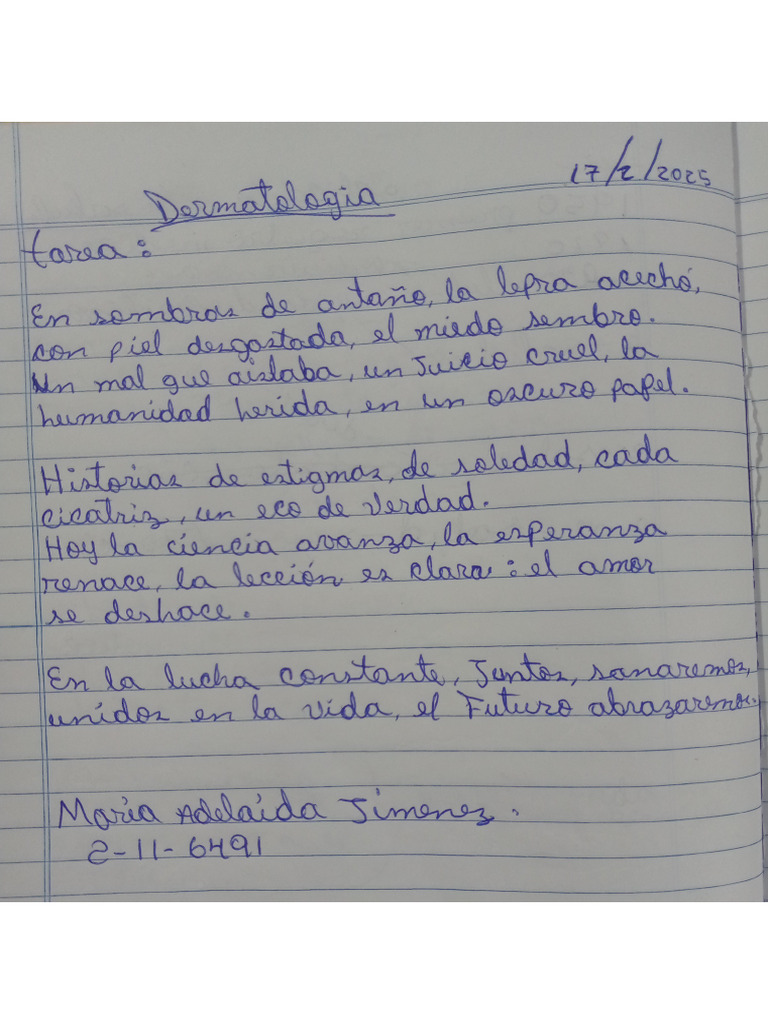 17/2/2025
Dermatologia
tarea:
En sombras de antaño, la lepra acechó,
con piel desgastada, el miedo sembro.
Un mal que aislaba, un Juicio cruel, la
humanidad herida, en un oscuro papel.
Historias de estigmas, de soledad, cada
cicatriz, un eco de verdad.
Hoy la ciencia avanza, la esperanza
renace, la lección es clara: el amor
se deshace.
En la lucha constante, Juntos, sanaremos,
unidos en la vida, el Futuro abrazaremos.
Maria Adelaida Jimenez.
2-11-6491